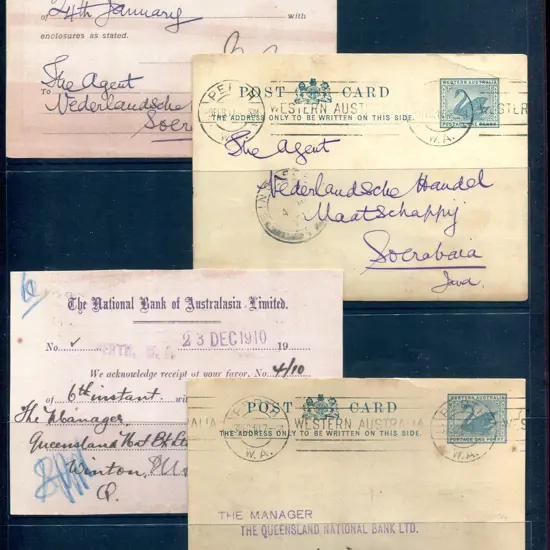 of 24th January with
enclosures as stated.
The Agent
To
Nederlandsche
Soerabaia
POST CARD
WESTERN AUSTRALIA
THE ADDRESS ONLY TO BE WRITTEN ON THIS SIDE.
WESTERN AUST
W.A.
WESTER
W.A.
POSTAGE ONE PENNY
The Agent
Nederlandsche Handel
Maatschappij
Soerabaia
Java
The National Bank of Australasia Limited.
No. 23 DEC 1910 19
We acknowledge receipt of your favor, No. 4/10
of 6th instant
The Manager
Queensland Nat Bk
Winton
Q.
POST CARD
WESTERN AUSTRALIA
THE ADDRESS ONLY TO BE WRITTEN ON THIS SIDE.
ALIA
WESTERN AUSTRALIA
W.A.
W.A.
POSTAGE ONE PENNY
THE MANAGER
THE QUEENSLAND NATIONAL BANK LTD.